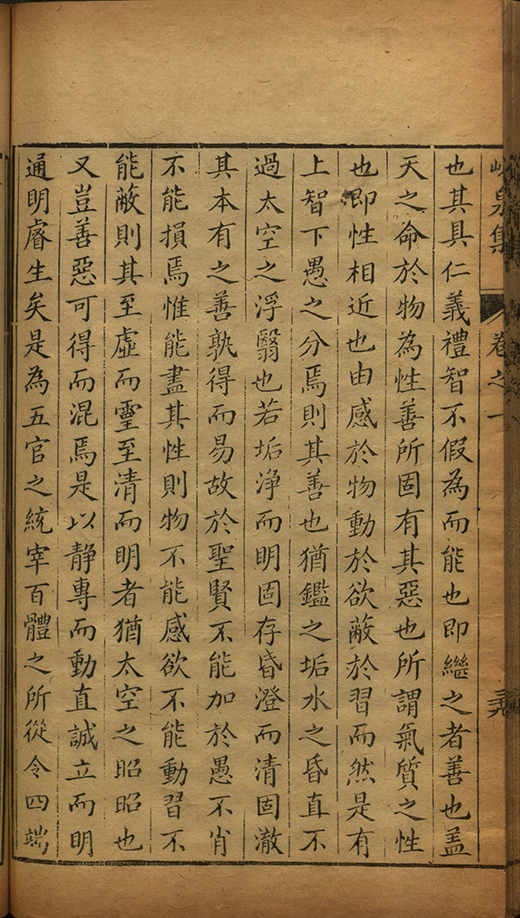 峴泉集
卷之一
也其具仁義禮智不假為而能也即繼之者善也盖
天之命於物為性善所固有其惡也所謂氣質之性
也即性相近也由感於物動於欲蔽於習而然是有
上智下愚之分焉則其善也猶鑑之垢水之昏直不
過太空之浮翳也若垢浄而明固存昏澄而清固澈
其本有之善孰得而易故於聖賢不能加於愚不肖
不能損焉惟能盡其性則物不能感欲不能動習不
能蔽則其至虛而靈至清而明者猶太空之昭昭也
又豈善惡可得而混焉是以静專而動直誠立而明
通明睿生矣是為五官之統宰百體之所從令四端